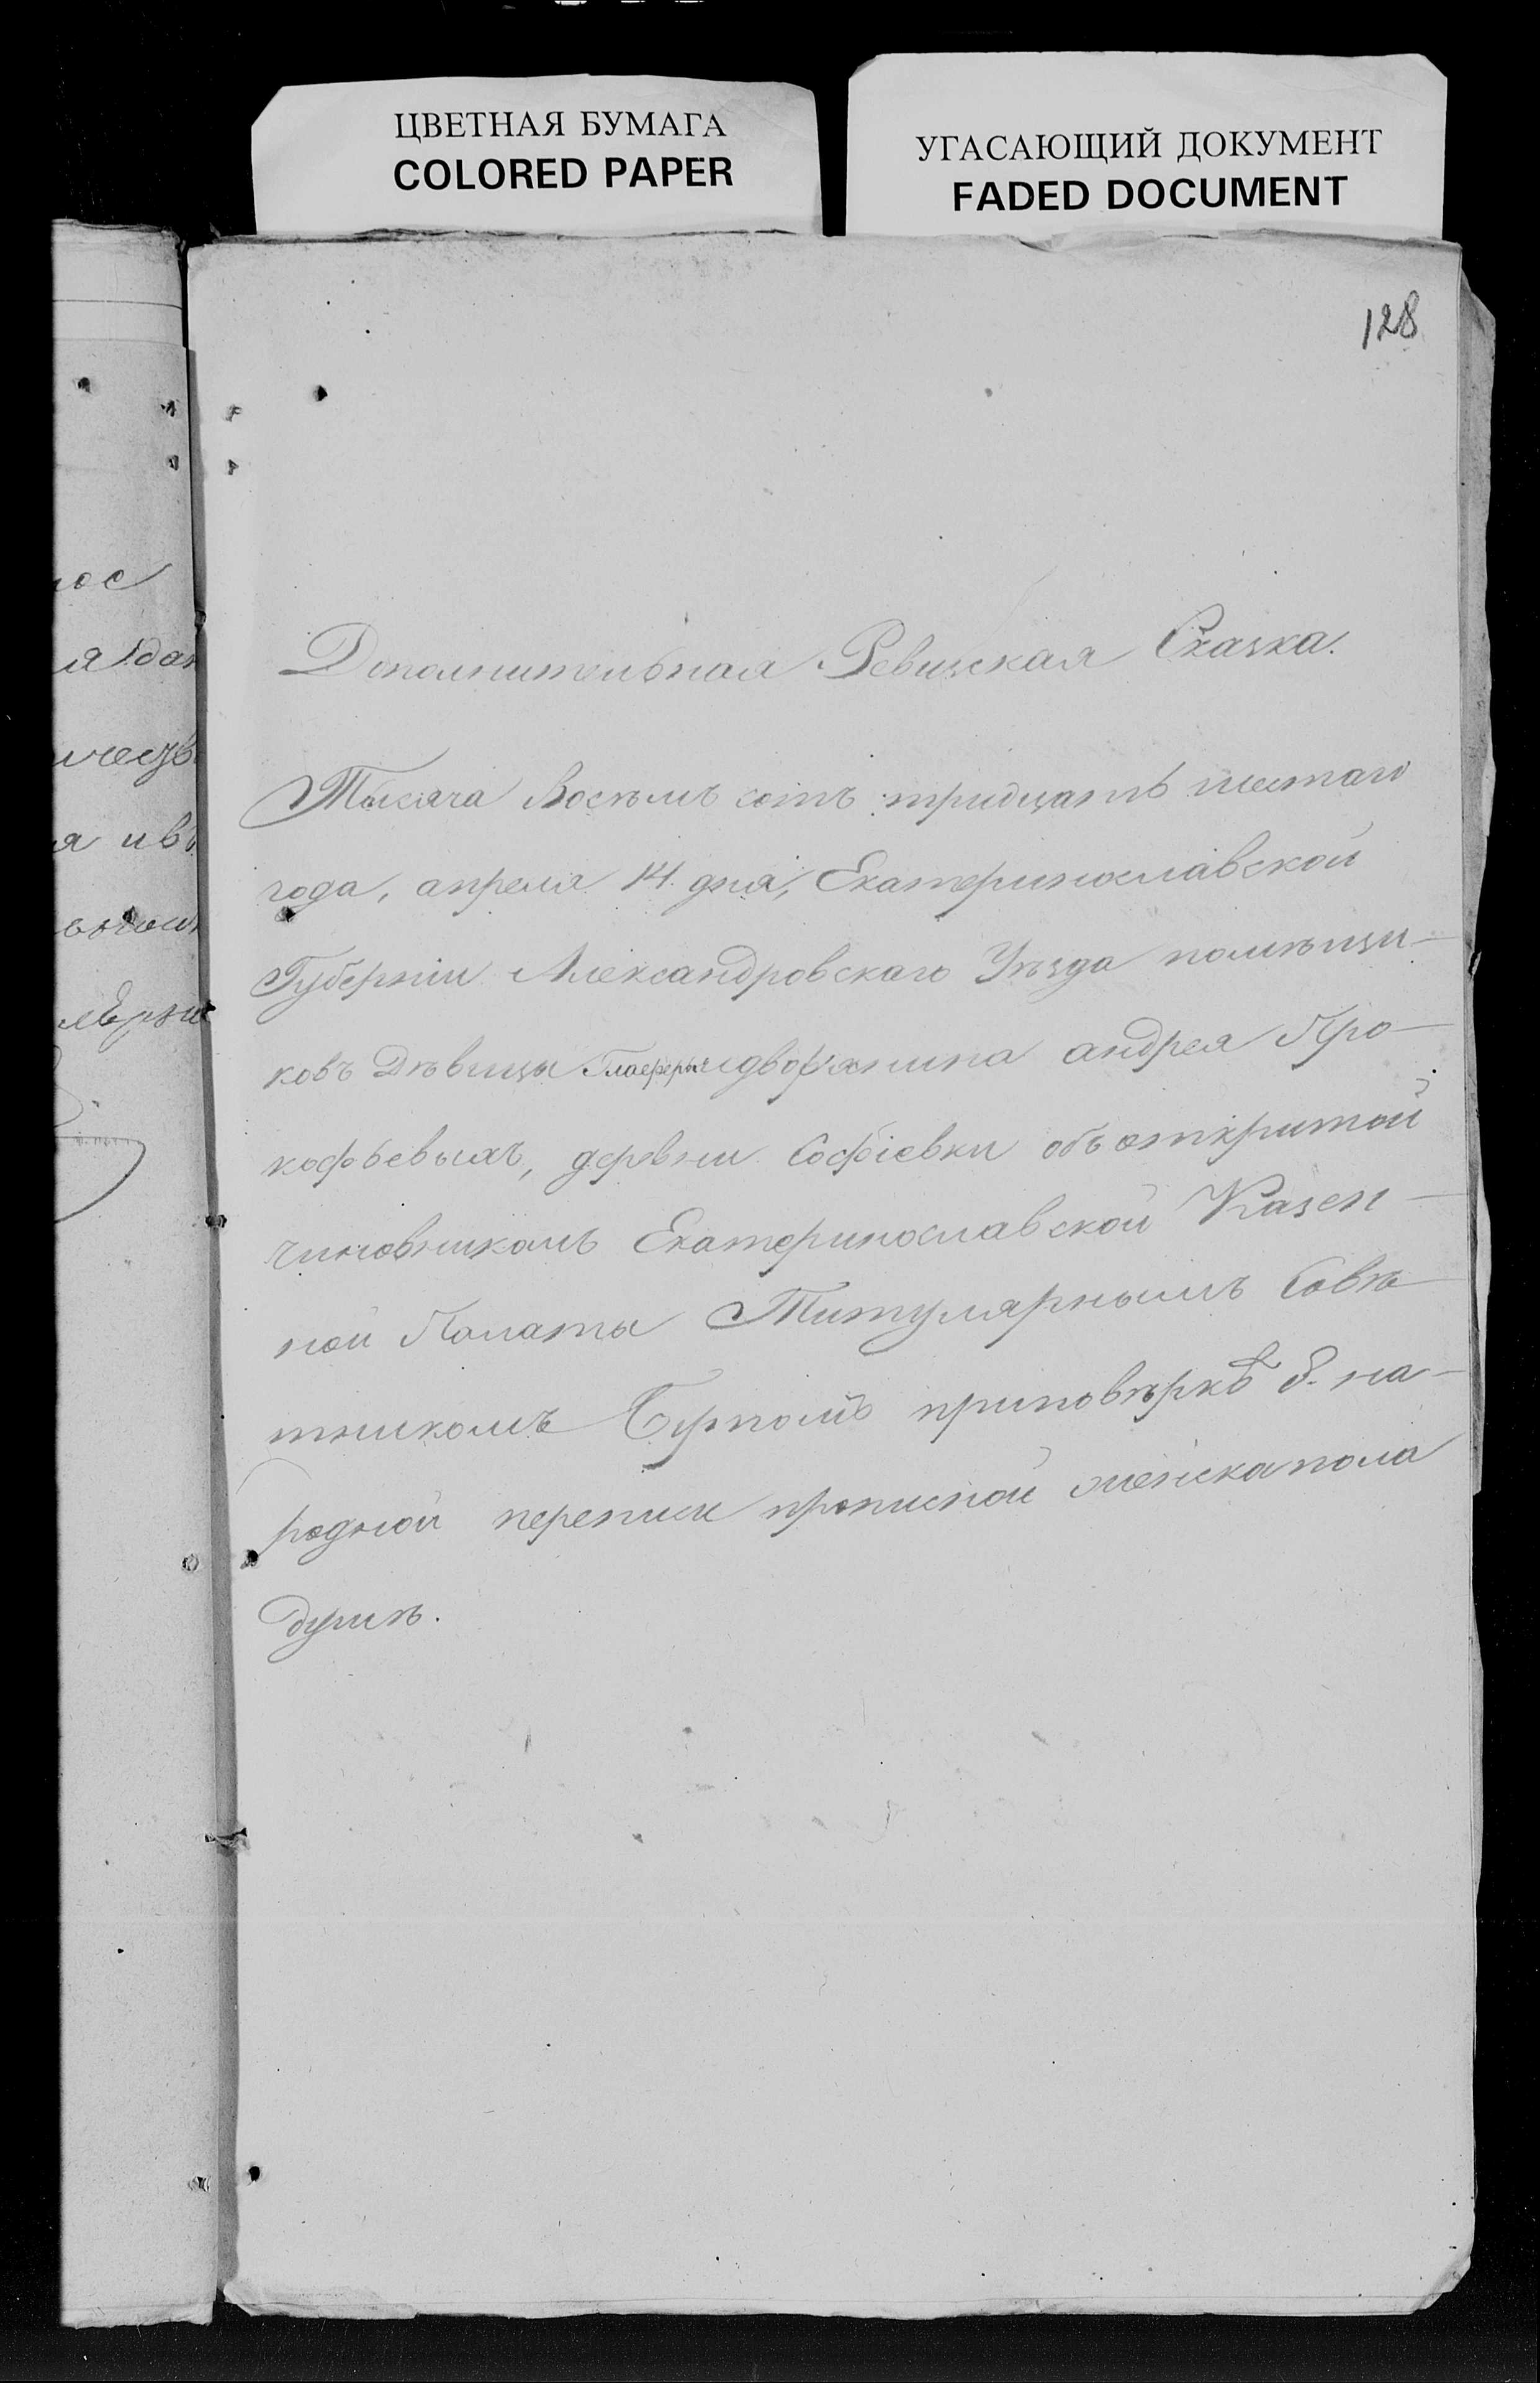 ЦВЕТНАЯ БУМАГА
COLORED PAPER
УГАСАЮЩИЙ ДОКУМЕНТ
FADED DOCUMENT
128
Дополнительная Ревизская Сказка.
Тысяча Восемъ сотъ тридцать шестаго
года, апреля 14. дня, Екатеринославской
Губерніи Александровскаго Уѣзда помѣщи-
ковъ Дѣвицы Глаферы и дворянина андрея Про-
кофьевыхъ, деревни Софіевки объ открытой
чиновникомъ Екатеринославской Казен-
ной Палаты Титулярнымъ Совѣ-
тникомъ приповѣркѣ 8. на-
родной переписи прописной женска пола
душѣ.